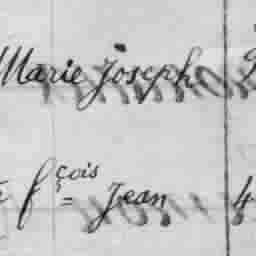 Marie Joseph 2
fçois Jean 4